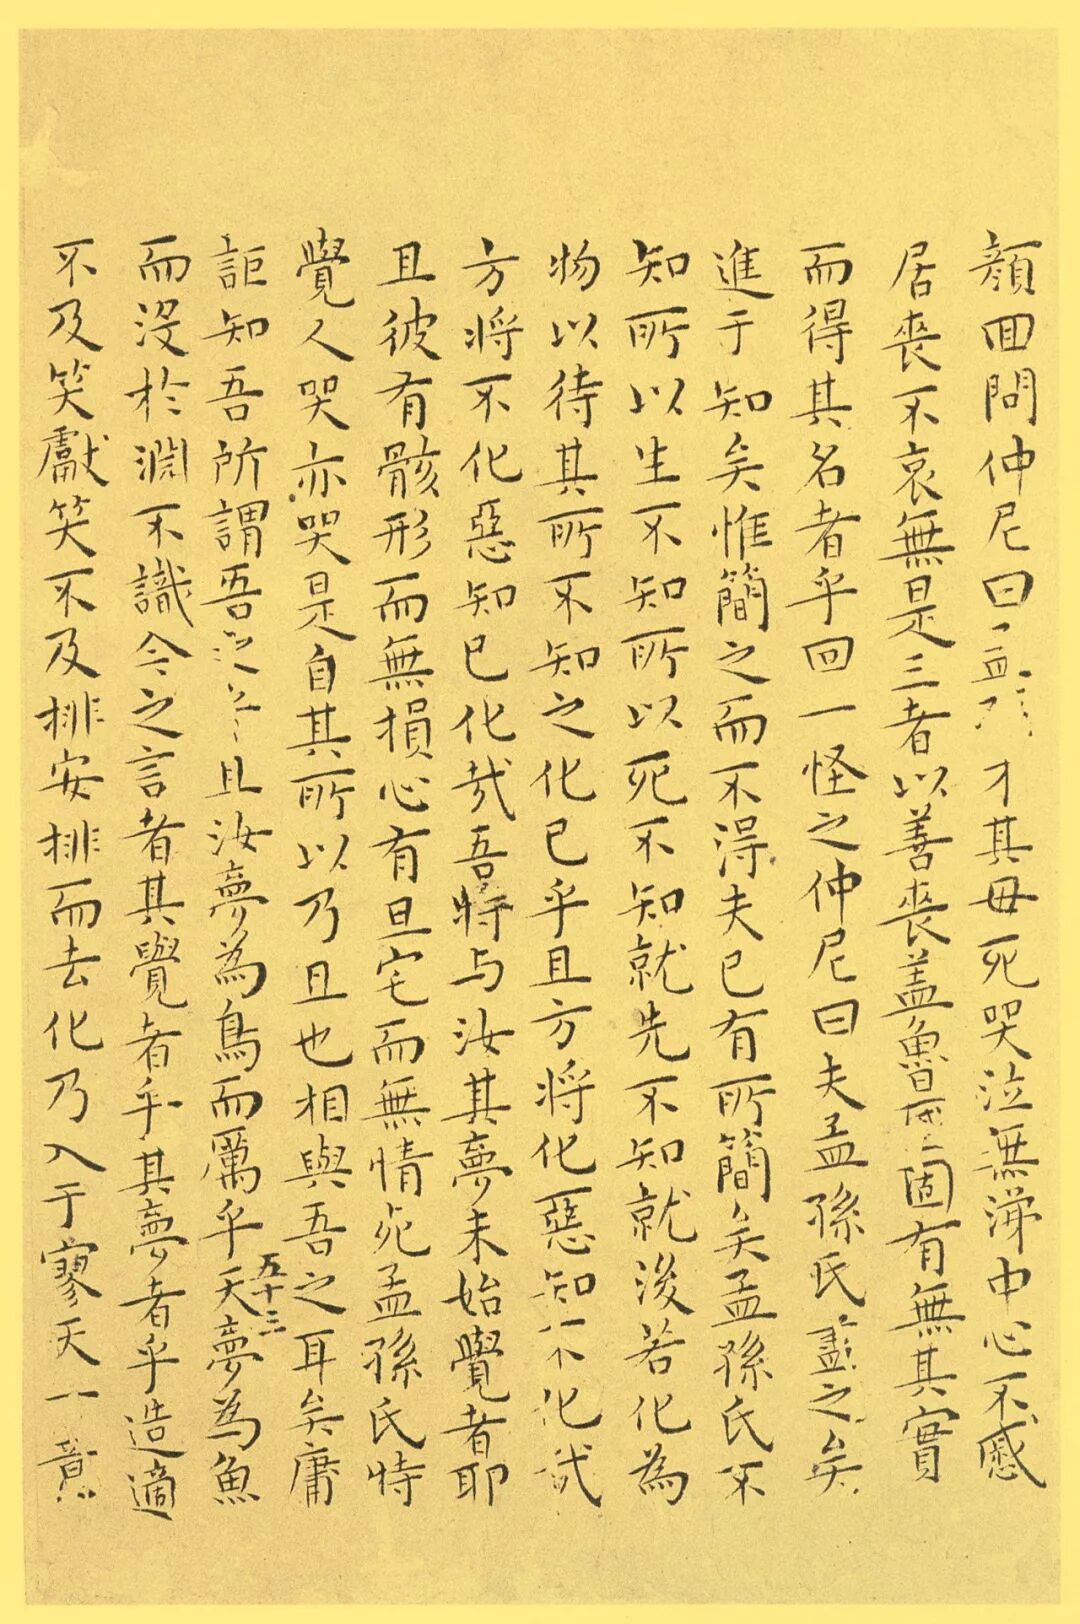 顏回問仲尼曰孟孫才其母死哭泣無涕中心不慼
居喪不哀無是三者以善喪蓋魯國固有無其實
而得其名者乎回一怪之仲尼曰夫孟孫氏盡之矣
進于知矣惟簡之而不得夫已有所簡矣孟孫氏不
知所以生不知所以死不知就先不知就後若化為
物以待其所不知之化已乎且方將化惡知不化哉
方將不化惡知已化哉吾將与汝其夢未始覺者耶
且彼有骸形而無損心有旦宅而無情死孟孫氏特
覺人哭亦哭是自其所以乃且也相與吾之耳矣庸
詎知吾所謂吾之 且汝夢為鳥而厲乎天夢為魚
五十三
而沒於淵不識今之言者其覺者乎其夢者乎造適
不及笑獻笑不及排安排而去化乃入于寥天一